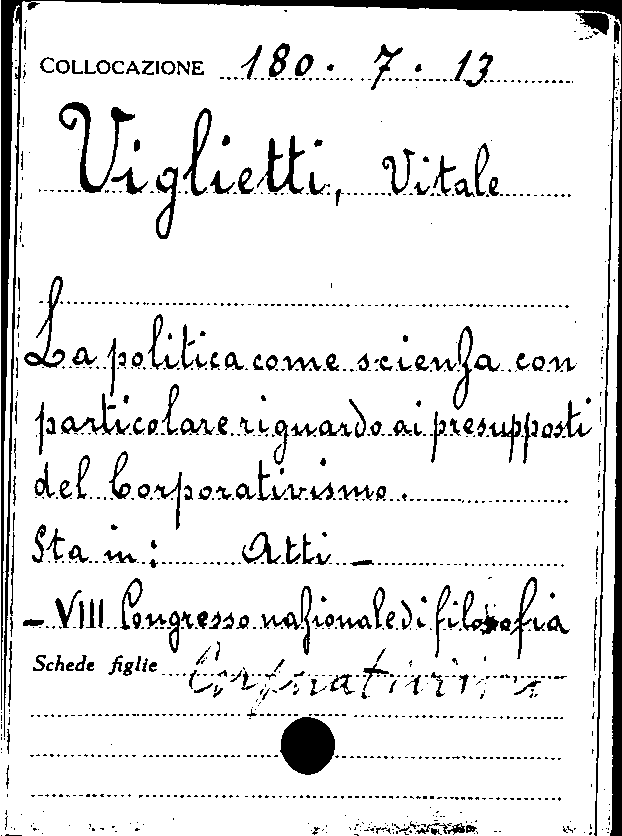 COLLOCAZIONE 180. 7. 13
Viglietti, Vitale
La politica come scienza con
particolare riguardo ai presupposti
del Corporativismo.
Sta in: Atti -
- VIII Congresso nazionale di filosofia
Schede figlie Corporativismo